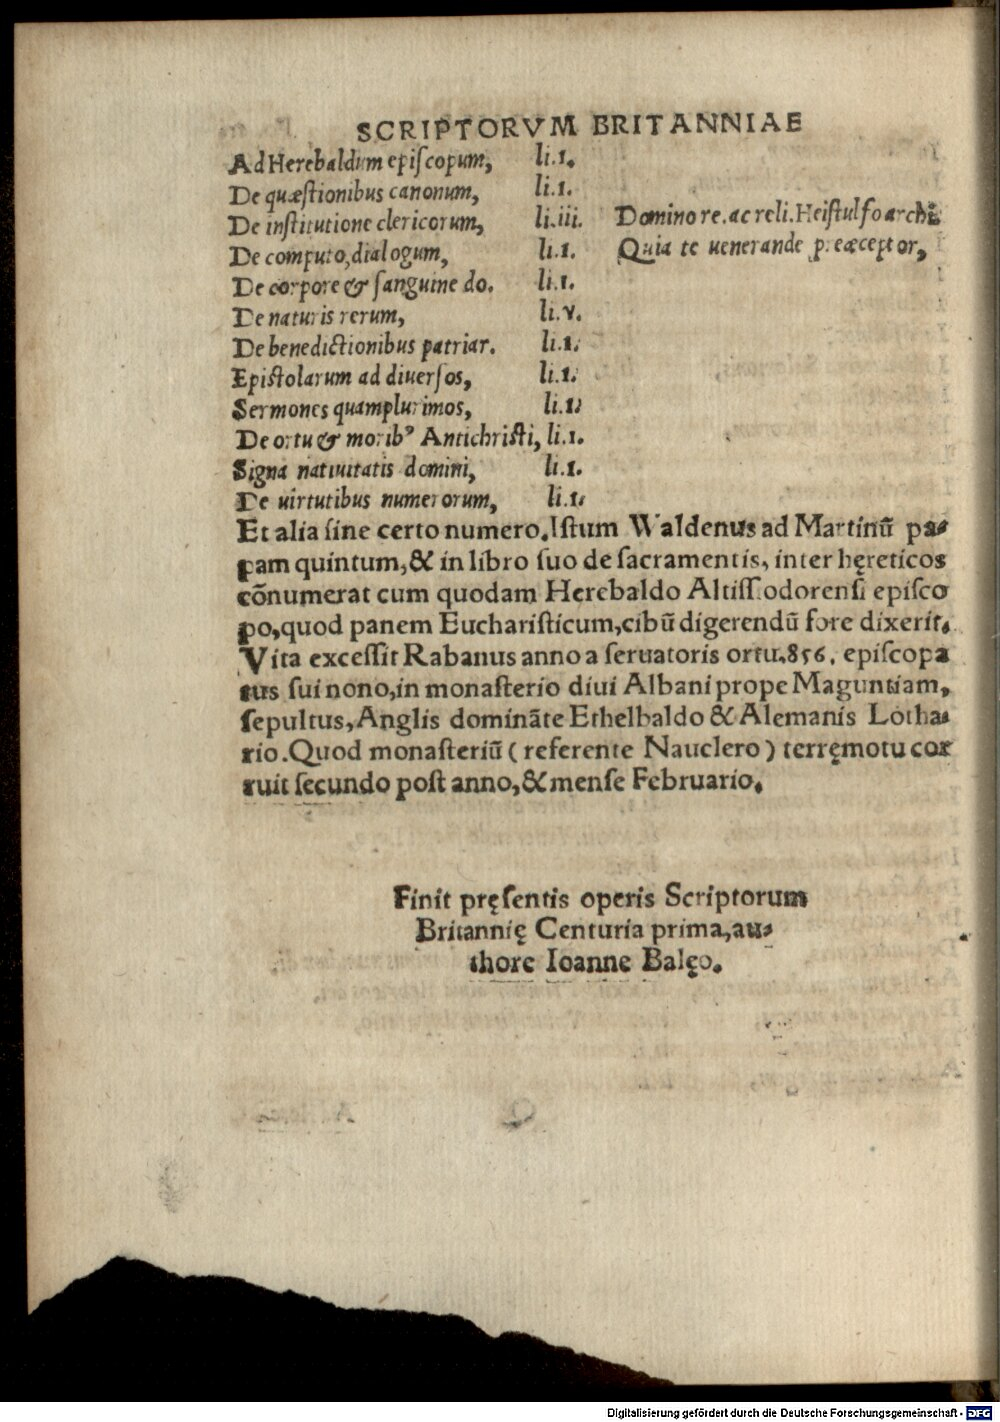 SCRIPTORVM BRITANNIAE
Ad Herebaldum episcopum, li.1.
De quæstionibus canonum, li.1.
De institutione clericorum, li.iii. Domino re. ac reli. Heistulfo archi
De computo, dialogum, li.1. Quia te uenerande præceptor,
De corpore & sanguine do. li.1.
De naturis rerum, li.v.
De benedictionibus patriar. li.1.
Epistolarum ad diuersos, li.1.
Sermones quamplurimos, li.1.
De ortu & morib⁹ Antichristi, li.1.
Signa natiuitatis domini, li.1.
De uirtutibus numerorum, li.1.
Et alia sine certo numero. Istum Waldenus ad Martinū pa-
pam quintum, & in libro suo de sacramentis, inter hęreticos
cōnumerat cum quodam Herebaldo Altissiodorensi episco
po, quod panem Eucharisticum, cibū digerendū fore dixerit.
Vita excessit Rabanus anno a seruatoris ortu. 856. episcopa
tus sui nono, in monasterio diui Albani prope Maguntiam,
sepultus, Anglis domināte Ethelbaldo & Alemanis Lotha-
rio. Quod monasteriū ( referente Nauclero ) terręmotu cor
ruit secundo post anno, & mense Februario.
Finit pręsentis operis Scriptorum
Britannię Centuria prima, au-
thore Ioanne Balęo.
Digitalisierung gefördert durch die Deutsche Forschungsgemeinschaft - DFG